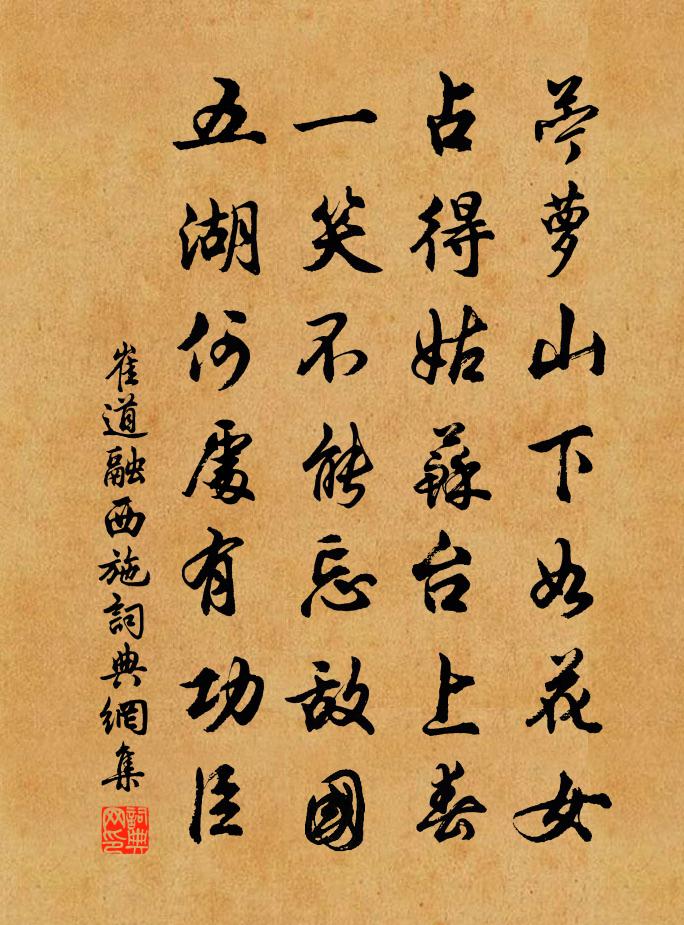 苎萝山下如花女
占得姑蘇台上春
一笑不能忘敌國
五湖何處有功臣
崔道融西施詞典網集
詞典网印